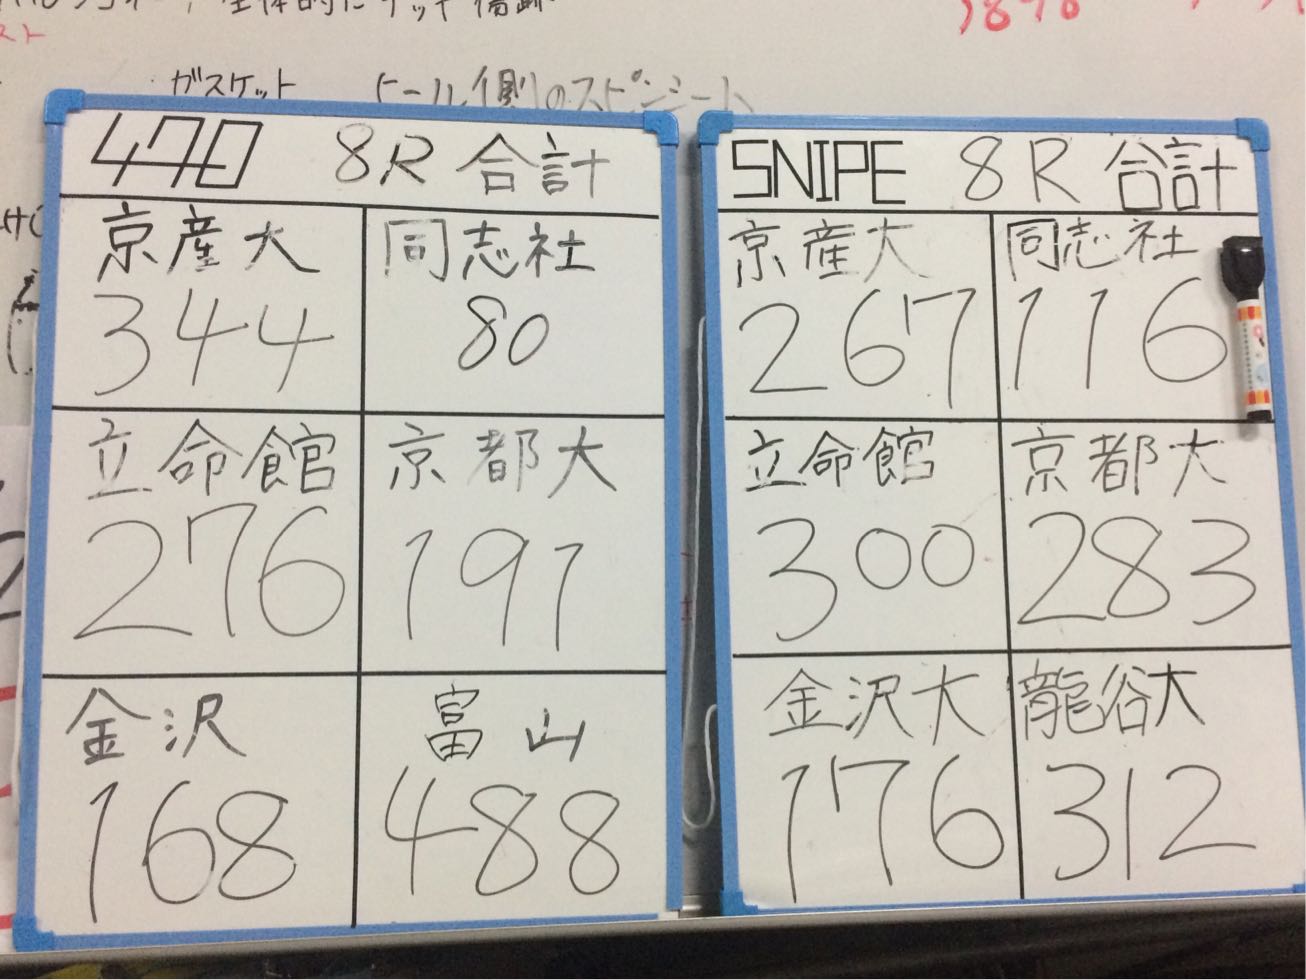 ガスケット ヒール側のスピンシート
470 8R 合計
京産大 同志社
344 80
立命館 京都大
276 191
金沢 富山
168 488
SNIPE 8R 合計
京産大 同志社
267 116
立命館 京都大
300 283
金沢大 龍谷大
176 312